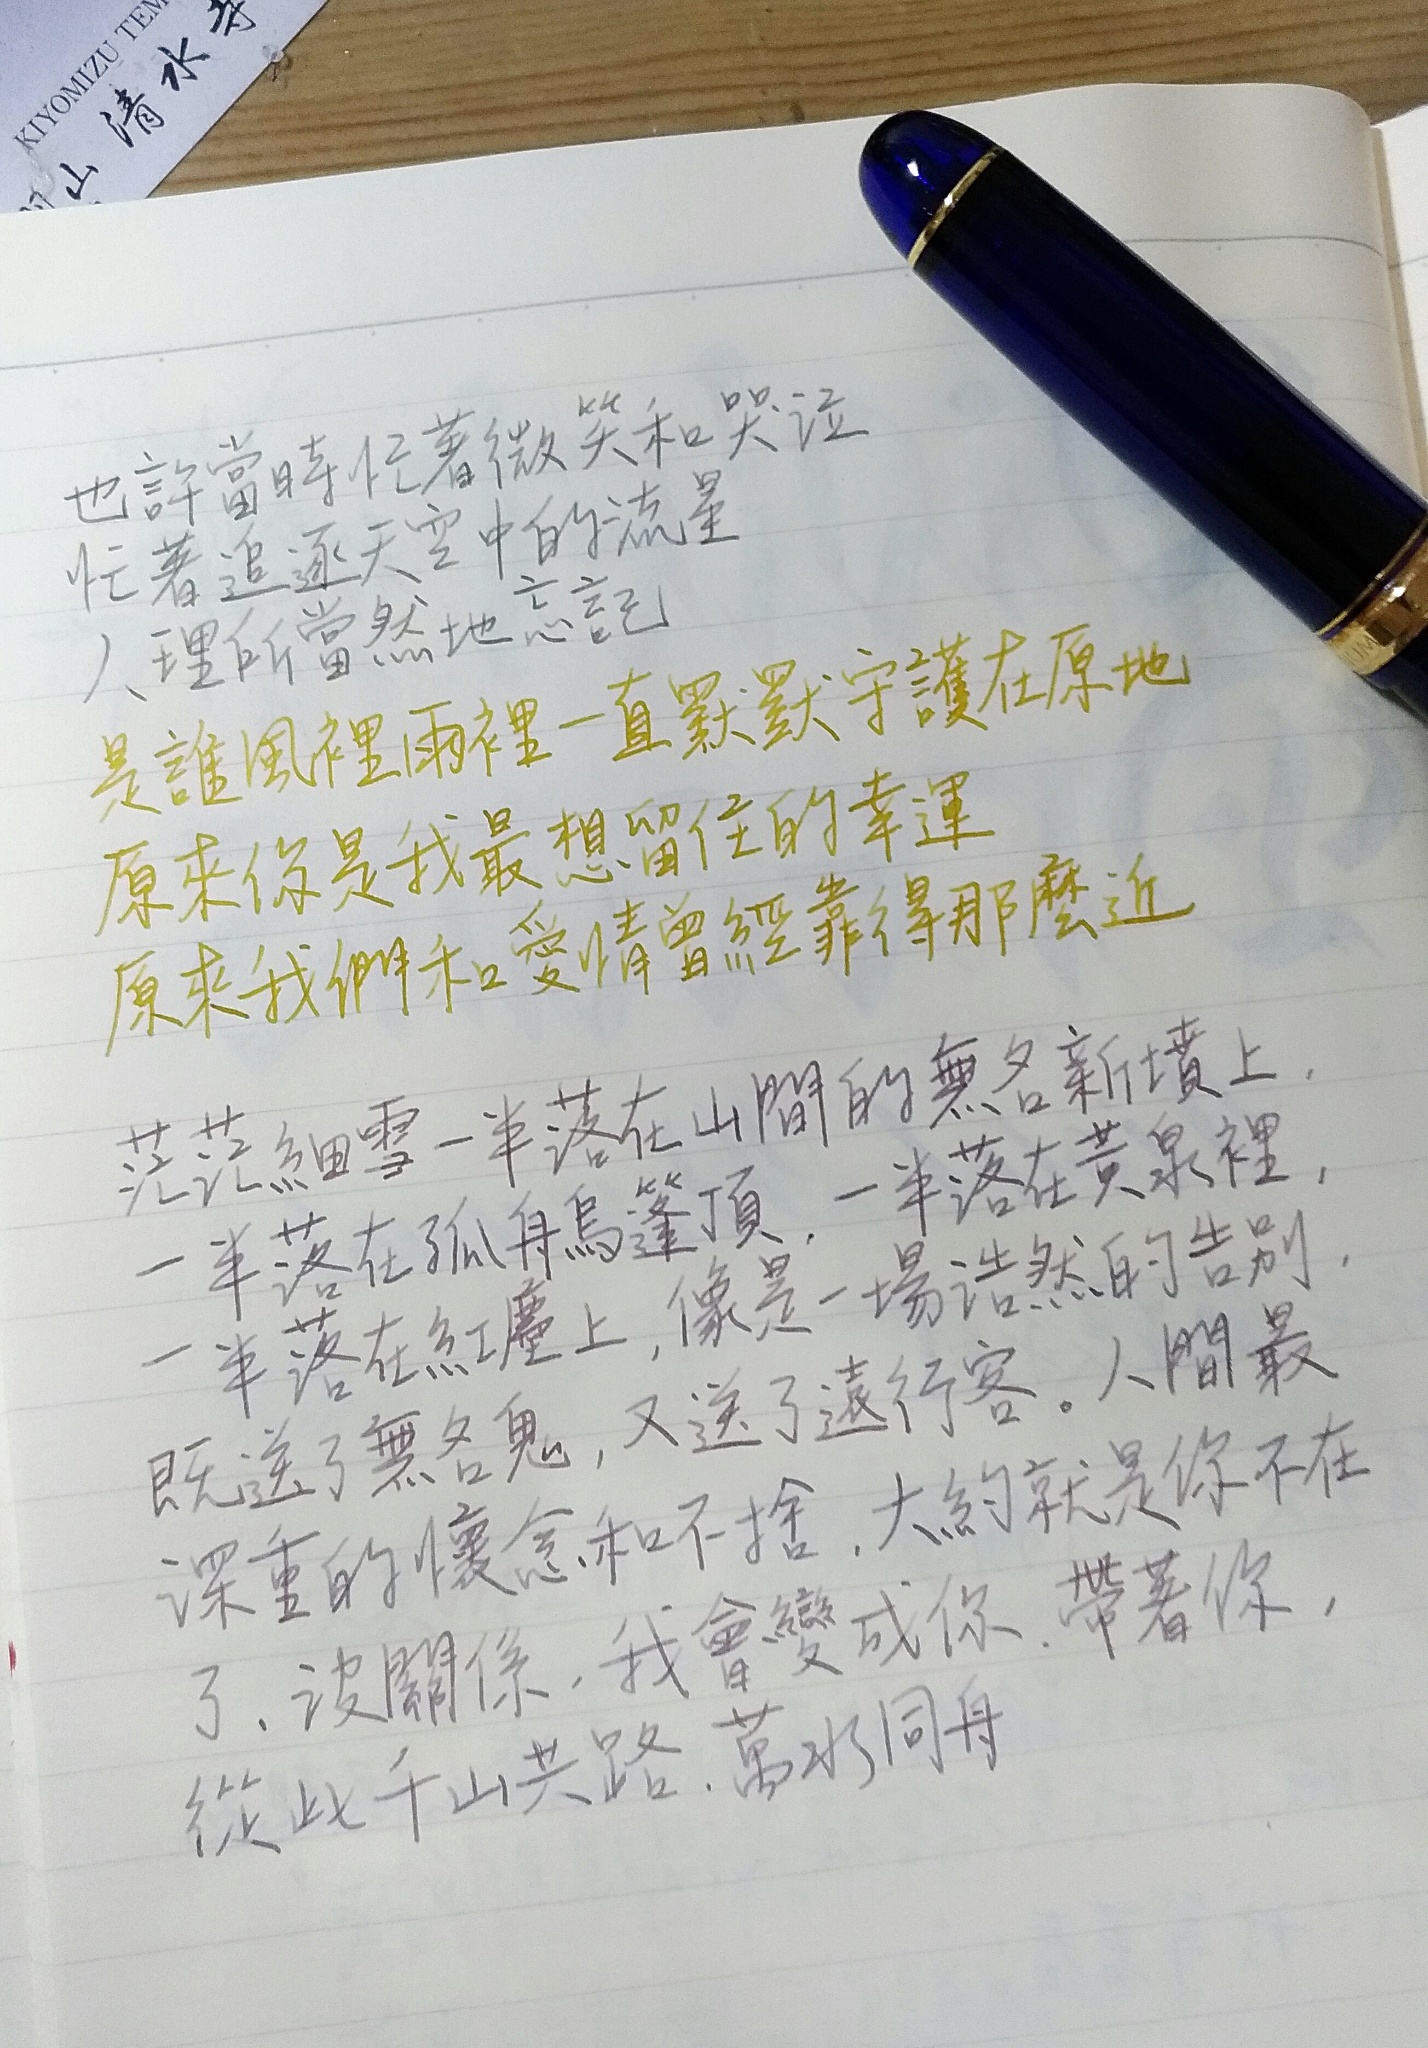 KIYOMIZU TEM
山 清水寺
也許當時忙著微笑和哭泣
忙著追逐天空中的流星
人理所當然地忘記
是誰風裡雨裡一直默默守護在原地
原來你是我最想留住的幸運
原來我們和愛情曾經靠得那麼近
茫茫細雪一半落在山間的無名新墳上,
一半落在孤舟烏篷頂,一半落在黃泉裡,
一半落在紅塵上,像是一場浩然的告別,
既送了無名鬼,又送了遠行客。人間最
深重的懷念和不捨,大約就是你不在
了、沒關係,我會變成你、帶著你,
從此千山共路、萬水同舟